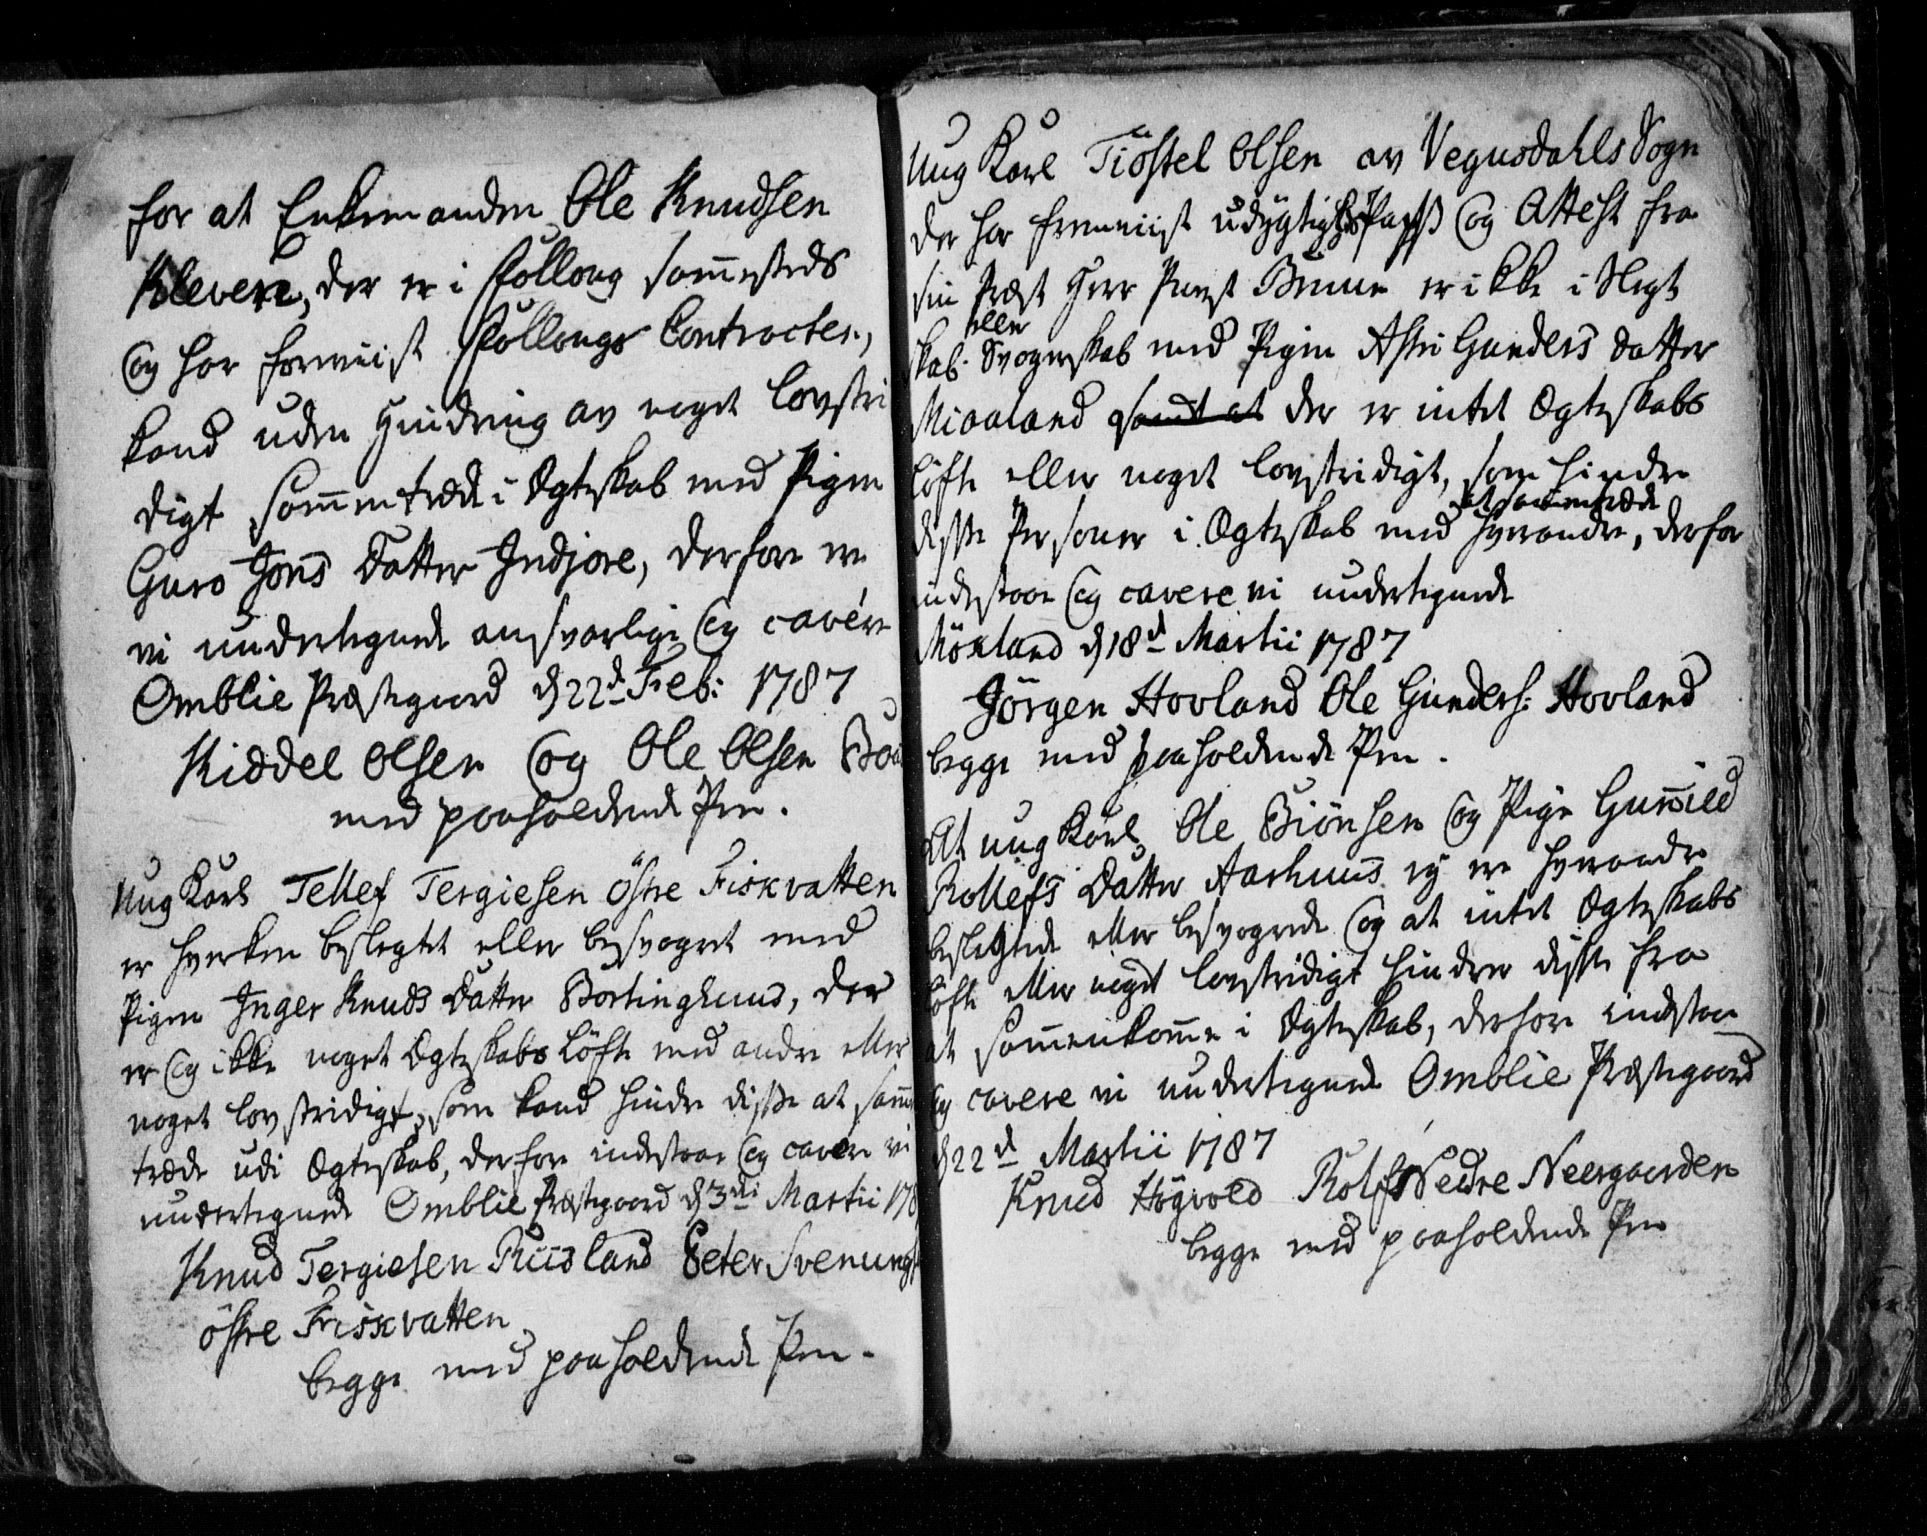 for at Enkemanden Ole Knudsen
Kleven, der er i følloug sammesteds
og har forviist føllougs Contracten,
kand uden Hindring av noget lovstri
digt sammentræde i Ægteskab med Pigen
Guro Jons Datter Indjore, derfore ere
vi undertegnede ansvarlige og cavére
Omblie Præstegaard d 22d Feb: 1787
Kiddel Olsen og Ole Olsen
med paaholdende Pen.
Ung Karl Tellef Tergiesen östre Fiskvatten
er hverken beslegtet eller besvogret med
Pigen Inger Knuds Datter Bortinghuus, der
er og ikke noget Ægteskabs Löfte med andre eller
noget lovstridigt, som kand hindre disse at sam̅en
træde udi Ægteskab, derfore indestaae og cavere vi
undertegnede Omblie Præstegaard d 3di Martii 178
Knud Tergiesen Riisland Peter Svenungs
östre Friskvatten
begge med paaholdende Pen.
Ung Karl Tiöstel Olsen av Vegusdahls Sogn
der har fremviist udygtigheds Pass og Attest fra
sin Præst Herr Provst er ikke i Slegt
eller
skab. Svogerskab med Pigen Astri Gunders datter
Miaaland samt at der er intet Ægteskabs
Löfte eller noget lovstridigt, som hindre
at sammentræde
disse Personer i Ægteskab med hverandre, derfor
indestaae og cavere vi undertegnede
Mönland d 18d Martii 1787
Jörgen Hovland Ole Gunders: Hovland
begge med paaholdende Pen.
At ung Karl Ole Biönsen og Pige Gunnild
Rollefs Datter Aarhuus ey ere hverandre
beslegtede eller besvogrede og at intet Ægteskabs
Löfte eller noget lovstridigt hindrer disse fra
at sam̅enkom̅e i Ægteskab, derfore indestaae
og cavere vi undertegnede Omblie Præstegaard
d 22d Martii 1787
Knud Högvold Rolf Nedre Neergaarden
begge med paaholdende Pen